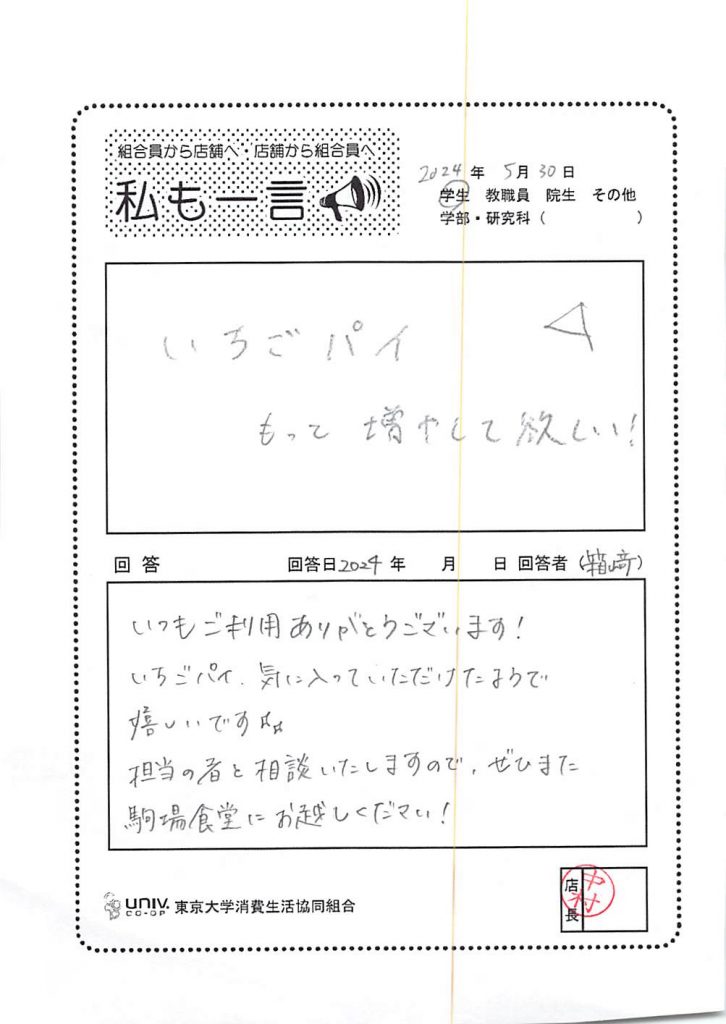 組合員から店舗へ・店舗から組合員へ
私も一言
2024年 5月30日
学生 教職員 院生 その他
学部・研究科（ ）
いちごパイ
もって 増やして欲しい!
回答 回答日2024年 月 日 回答者(箱崎)
いつもご利用ありがとうございます!
いちごパイ、気に入っていただけたようで
嬉しいです
担当の者と相談いたしますので、ぜひまた
駒場食堂にお越しください!
UNIV. CO-OP 東京大学消費生活協同組合
店長
中村